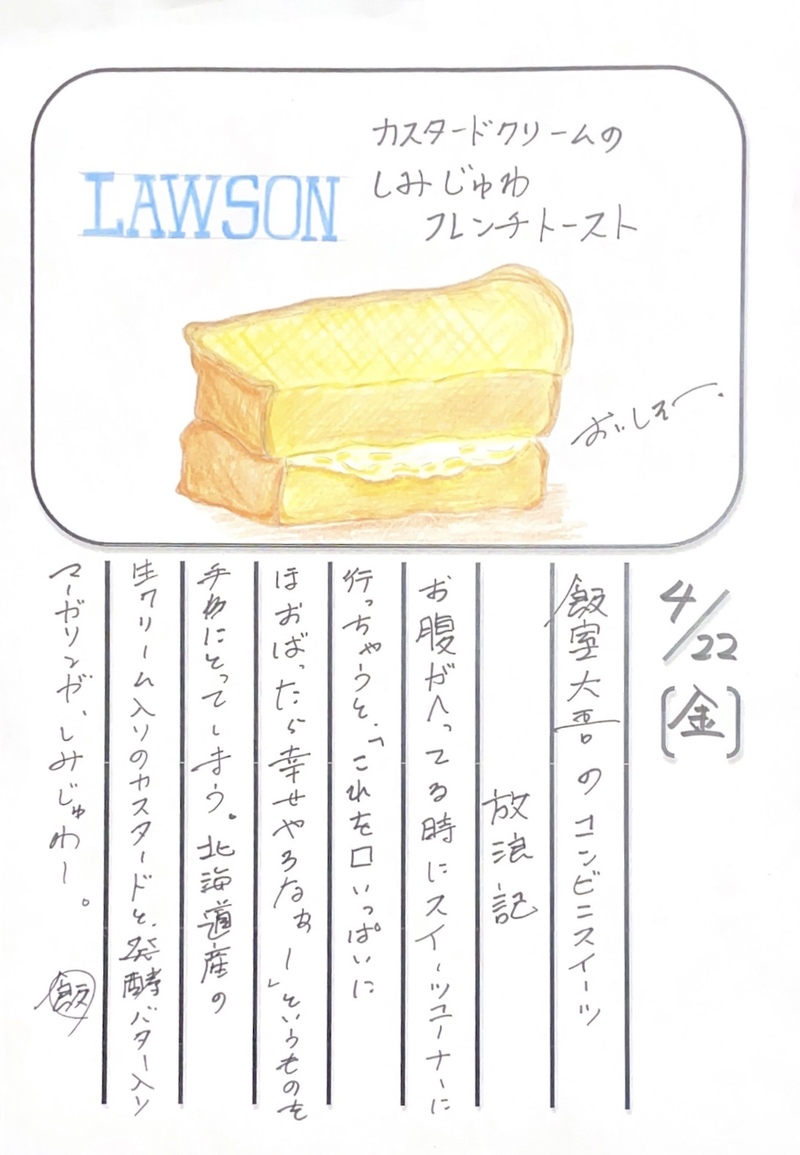 LAWSON
カスタードクリームの
しみじゅわ
フレンチトースト
おいしそー。
4/22
(金)
飯室大吾のコンビニスイーツ
放浪記
お腹がへってる時にスイーツコーナーに
行っちゃうと、「これを口いっぱいに
ほおばったら幸せやろなぁー」というものを
手にとってしまう。北海道産の
生クリーム入りのカスタードと、発酵バター入り
マーガリンが、しみじゅわー。
飯